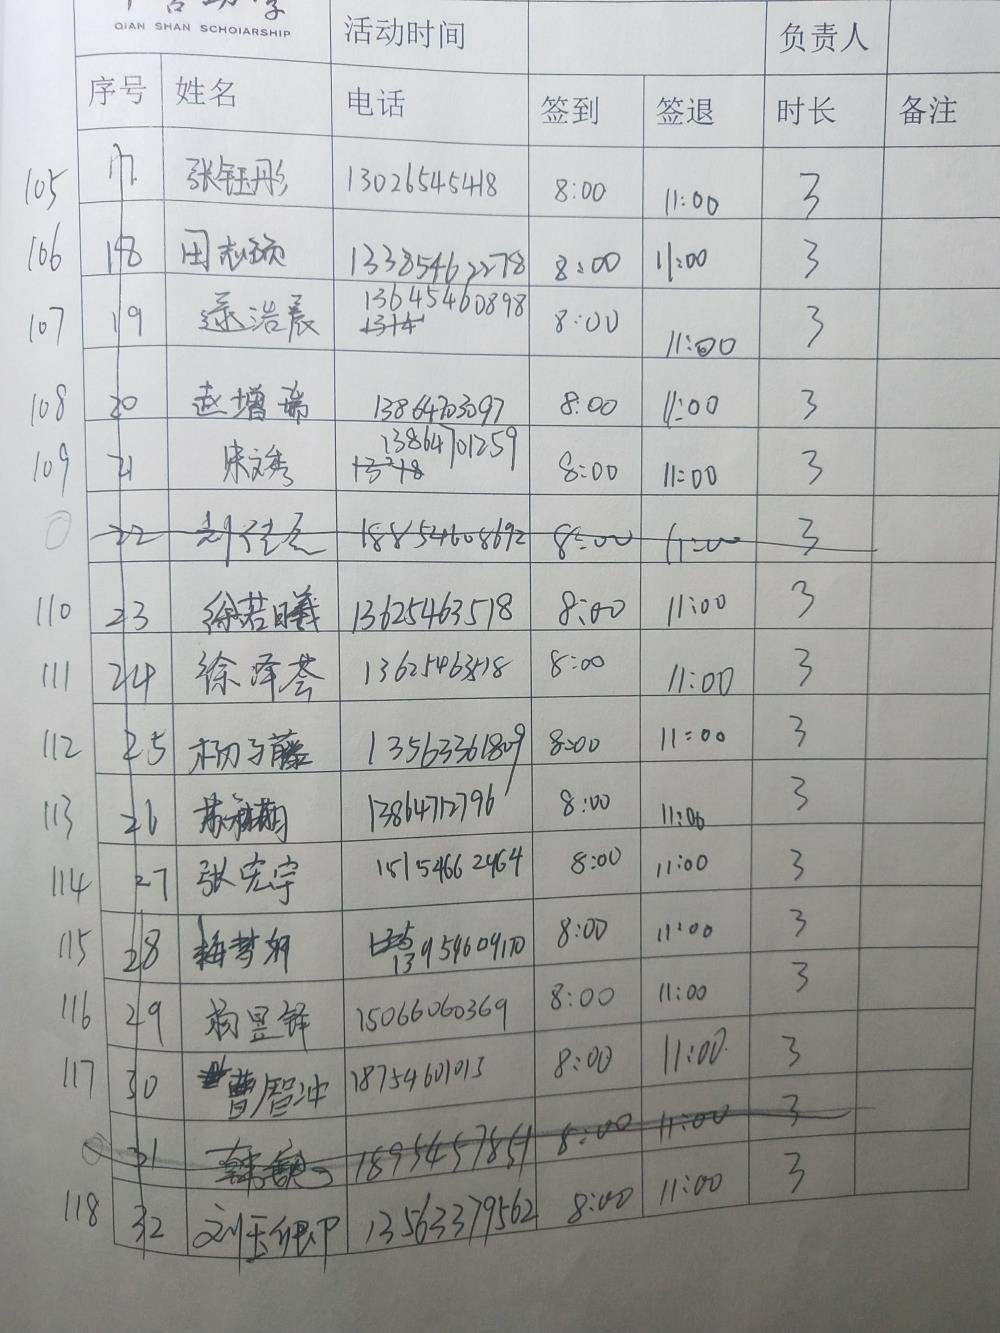 QIAN SHAN SCHOIARSHIP 活动时间 负责人
序号 姓名 电话 签到 签退 时长 备注
105 17 张钰彤 13026545418 8:00 11:00 3
106 18 田志颂 13385462278 8:00 11:00 3
107 19 浩晨 13645460898 8:00 11:00 3
108 20 赵增瑞 13864703097 8:00 11:00 3
109 21 宋文秀 13864701259 8:00 11:00 3
22 18854608692 8:00 11:00 3
110 23 徐若曦 13625463518 8:00 11:00 3
111 24 徐泽荟 13625463518 8:00 11:00 3
112 25 杨子藤 13563361809 8:00 11:00 3
113 26 13864712796 8:00 11:00 3
114 27 张宪宇 15154662464 8:00 11:00 3
115 28 梅梦轩 13954604170 8:00 11:00 3
116 29 杨昱铎 15066060369 8:00 11:00 3
117 30 曹智冲 18754601013 8:00 11:00 3
31 18954578 8:00 11:00 3
118 32 刘玉 13563379562 8:00 11:00 3